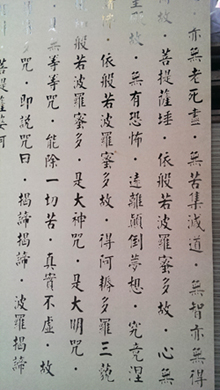 亦無老死盡 無苦集滅道 無智亦無得
故・菩提薩埵・依般若波羅蜜多故・心無
故・無有恐怖・遠離顛倒夢想 究竟涅
依般若波羅蜜多故・得阿耨多羅三藐
般若波羅蜜多・是大神咒・是大明咒・
無等等咒・能除一切苦・真實不虛・故
多咒・即說咒曰・揭諦揭諦・波羅揭諦
菩提薩婆訶